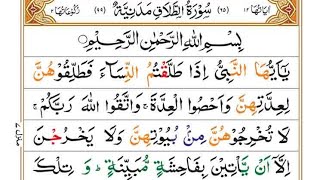 اٰيَاتُهَا ١٢ (٦٥) سُوْرَةُ الطَّلَاقِ مَدَنِيَّةٌ (٩٩) رُكُوْعَاتُهَا ٢
بِسْمِ اللهِ الرَّحْمٰنِ الرَّحِيْمِ
يٰۤاَيُّهَا النَّبِيُّ اِذَا طَلَّقْتُمُ النِّسَآءَ فَطَلِّقُوْهُنَّ
لِعِدَّتِهِنَّ وَاَحْصُوا الْعِدَّةَ ۚ وَاتَّقُوا اللهَ رَبَّكُمْ ۚ
لَا تُخْرِجُوْهُنَّ مِنْۢ بُيُوْتِهِنَّ وَلَا يَخْرُجْنَ
اِلَّاۤ اَنْ يَّاْتِيْنَ بِفَاحِشَةٍ مُّبَيِّنَةٍ ؕ وَ تِلْكَ